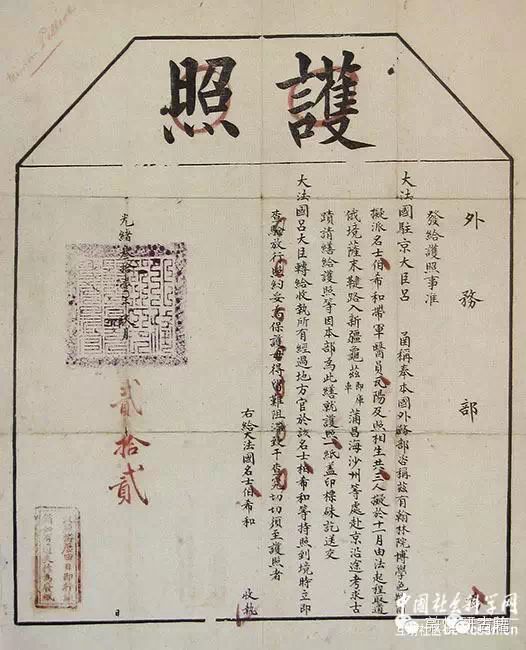 Mission Pelliot
護照
外務部
發給護照事准
大法國駐京大臣呂 函稱奉本國外務部咨稱茲有翰林院博學
擬派名士伯希和帶軍醫員瓦陽及照相生共三人擬於十一月由法起程取道
俄境薩末鞬路入新疆龜茲即庫車蒲昌海沙州等處赴京沿途考求古
蹟請繕給護照等因本部為此繕就護照一紙蓋印標硃訖送交
大法國呂大臣轉給收執所有經過地方官於該名士伯希和等持照到境時立即
查驗放行照約妥為保護毋得留難阻滯致干查究切切須至護照者
右給大法國名士伯希和 收執
光緒叁拾壹年 月
貳拾貳
日
中国社会科学网